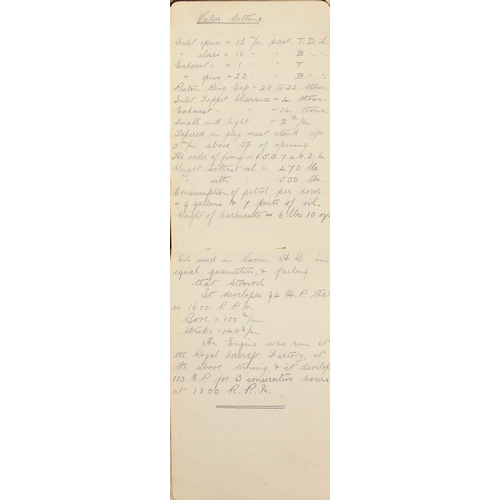 Valve Setting
Inlet opens = 12 m/m past T. D. C.
" closes = 16 " " B " "
Exhaust " = 1 " " T
" opens = 23 " " B " "
Piston Ring Gap = 20 to 22 thous.
Inlet Tappet Clearance = 4 thous.
Exhaust " " = 14 thous.
Small end light = 2 m/m
Tapered on plug must stand up
3 m/m above top of opening
The order of firing = 1. 5. 3. 7. 4. 8. 2. 6.
Weight without oil = 470 lbs
" with " 500 lbs.
Consumption of petrol per hour
= 9 gallons & 7 pints of oil.
Weight of Carburetter = 6 lbs 10 ozs
Oil used in Vacuum A B. in
equal quantities, & failing
that
It developes 94 H. P. that
1600. R. P. M.
Bore = 100 m/m
Stroke = 140 m/m
An Engine was run at
the Royal Aircraft Factory, at
the above & it develop
113 H. P. for 3 consecutive hours
at 1800 R. P. M.